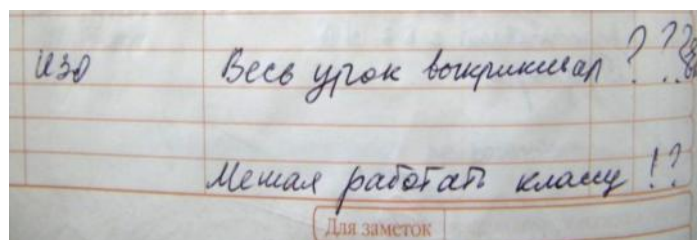 ИЗО Весь урок выкрикивал ???
Мешал работать классу !?
Для заметок